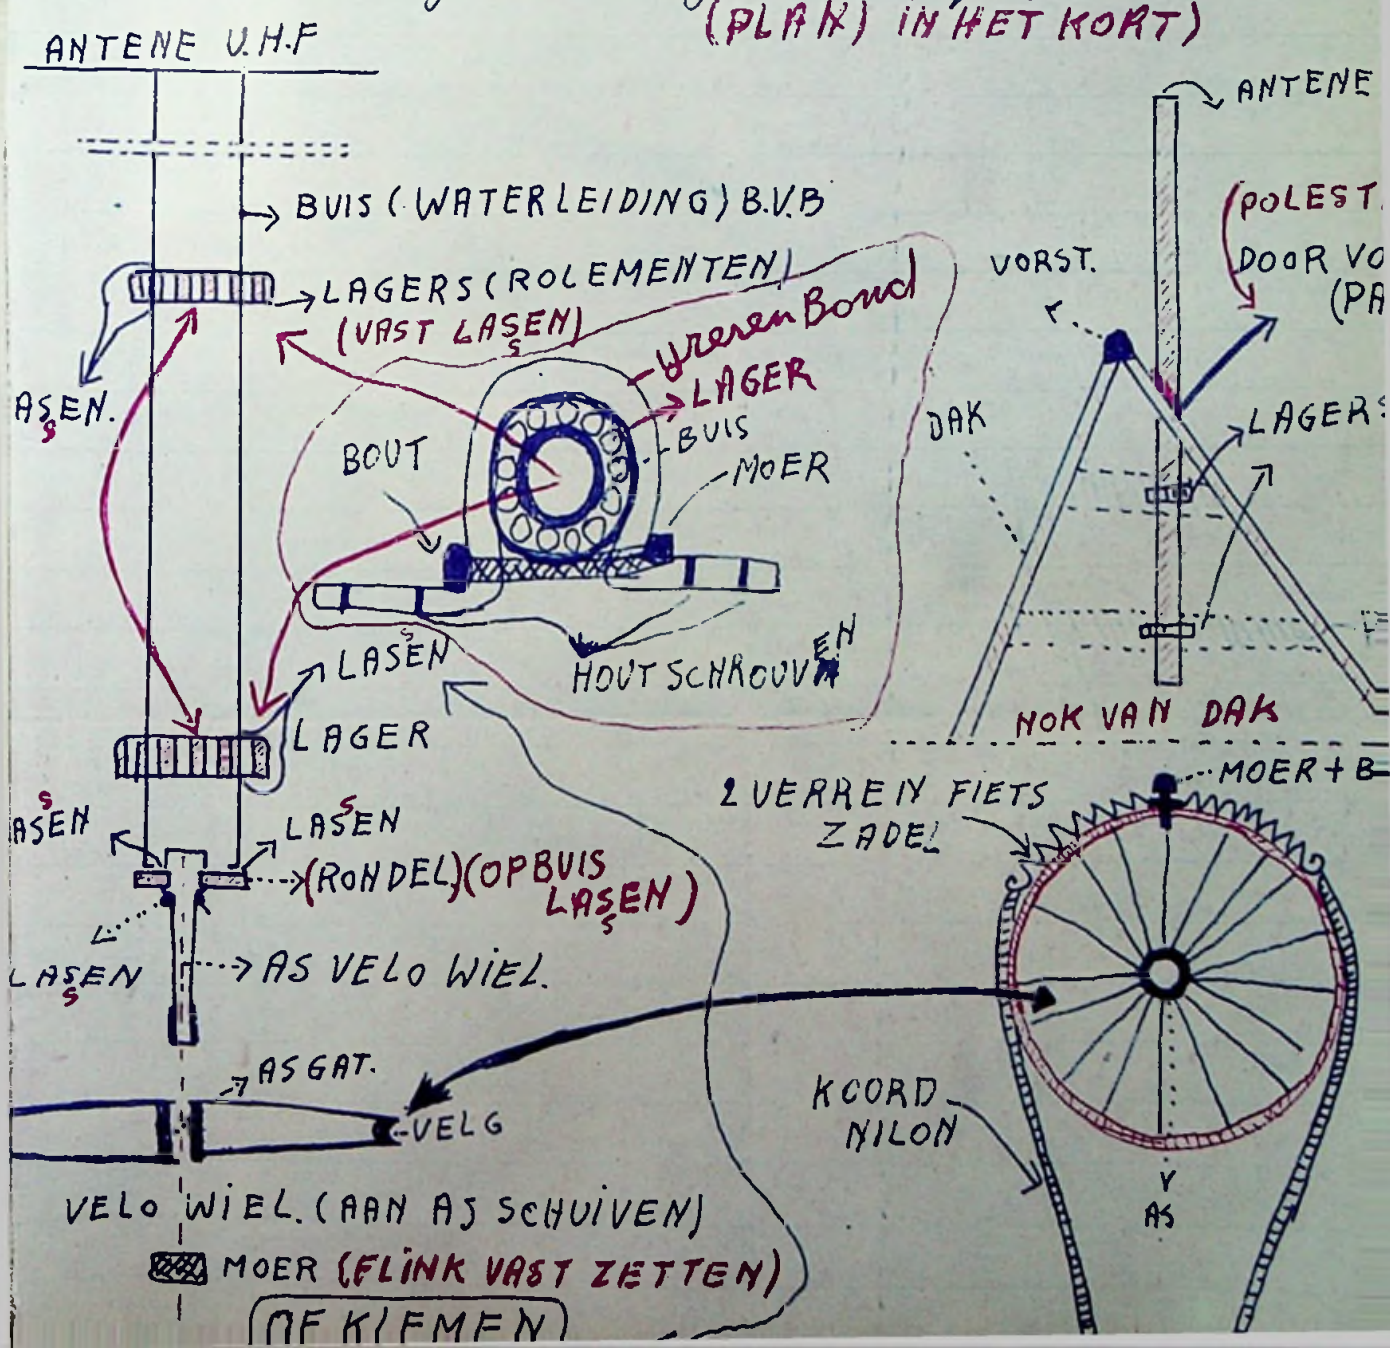 (PLAN) IN HET KORT)
ANTENE U.H.F
ANTENE
BUIS (WATERLEIDING) B.V.B
(POLEST.
DOOR VO
(PA
VORST.
LAGERS (ROLEMENTEN)
(VAST LASEN)
S
yzeren Band
LAGER
BUIS
MOER
BOUT
ASEN.
S
DAK
LAGERS
LASEN
S
HOUT SCHROUVEN
LAGER
NOK VAN DAK
MOER + B
2 VERREN FIETS
ZADEL
ASEN
S
LASEN
S
(RONDEL) (OP BUIS
LASEN)
S
LASEN
S
AS VELO WIEL.
AS GAT.
VELG
KOORD
NILON
AS
VELO WIEL. (AAN AS SCHUIVEN)
MOER (FLINK VAST ZETTEN)
OF KLEMEN